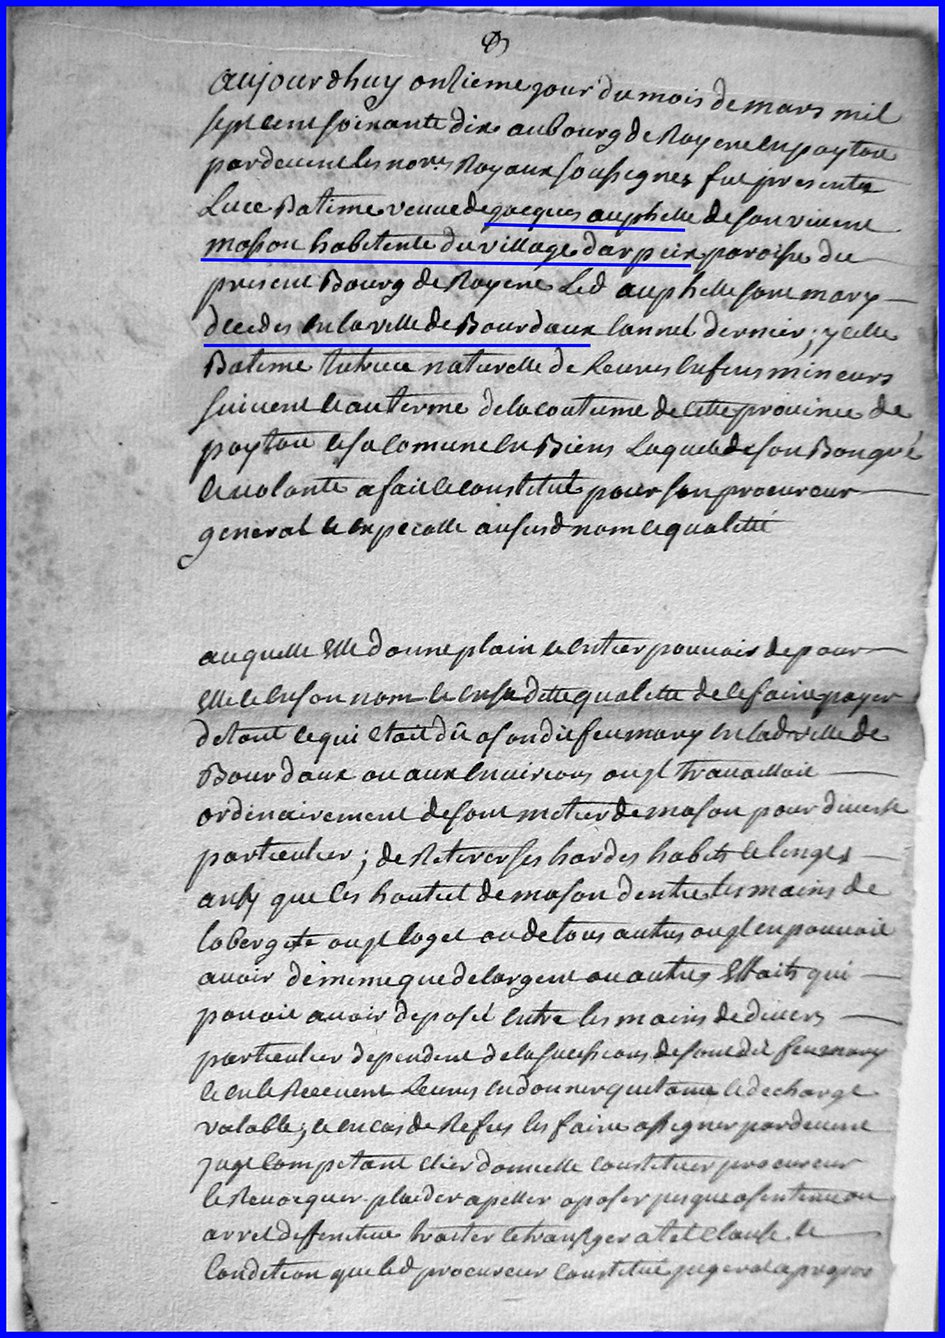 aujourdhuy onzieme jour du mois de mars mil
sept cent soixante dix au bourg de Royere en poytou
pardevent les nores Royaux soussignes fut presente
Luce Batime veuve de jacques auphelle de son vivent
mason habitente du village darpeix paroisse du
present Bourg de Royere Led auphelle sont mary
decedes en la ville de Bourdaux lannee dernier ; y celle
Batime tutrice naturelle de leures enfens mineurs
suivent le au terme de la coutume de cette province de
poytou et sa comune en Biens Laquelle de son Bon gre
et volonte a fait et constitué pour son procureur
general et expecalle au susd nom et qualitté
auquelle Elle donne plain et entier pouvoir de pour
Elle et en son nom et en sa ditte qualitté de se faire payer
de tout ce qui etoit dû a son dit feu mary en lad ville de
Bourdaux ou aux environs ou jl travailloit
ordineirement de sont metier de mason pour diverse
particulier ; de Retirer ses hardes habits et linges
ansy que les houtiel de mason dentre les mains de
lobergite ou jl loget ou de tous autres ou jl en pouvoit
avoir de meme que de largent ou autres Effaits qui
pouvoit avoir deposé entre les mains de divers
particulier dependent de la sucessions de sont dit feu mary
et en le Recevent Leures en donner quitance et decharge
valable ; et en cas de Refus les faire assigner pardevent
juge competant elier domicille constituer procureur
le Revocquer plaider apeller oposer jusque a sentence ou
arret diffinitive traiter et transiger a tel clause et
Condition que led procureur constitué jugera a propos